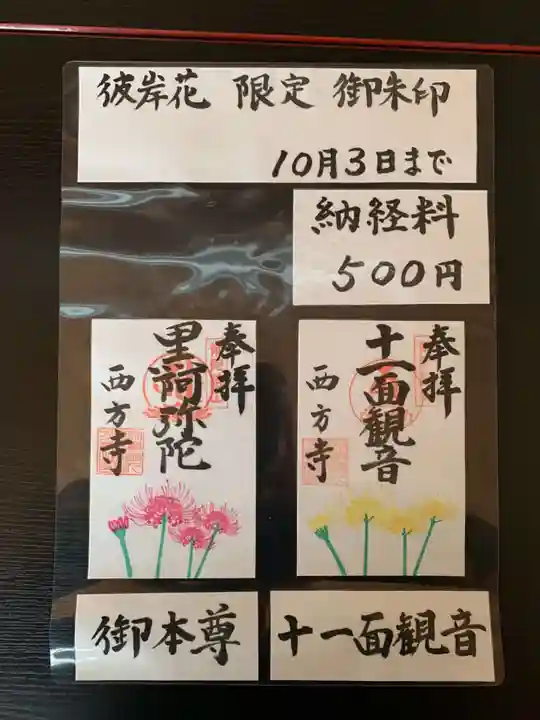 彼岸花 限定 御朱印
10月3日まで
納経料
500円
奉拝
十一面観音
西方寺
奉拝
黒阿弥陀
西方寺
御本尊
十一面観音